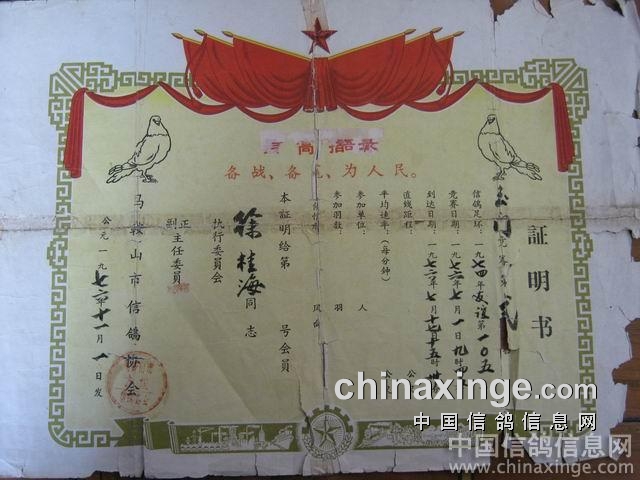 语录
备战、备荒、为人民。
証明书
玉门竞赛第贰
信鸽足环：一九七四年友谊第一〇五
竞赛日期：一九七六年七月一日九时
到达日期：一九七六年七月十七日十五时
直线距程：公
平均速率：（每分钟）公
参加单位：人
参加羽数：羽
风向
本証明给第 号会员
徐桂海同志
执行委员会
正
副主任委员
马鞍山市信鸽协会
公元一九七六年十一月一日发
chinaxinge.com
中国信鸽信息网
中国信鸽信息网
www.chinaxinge.com